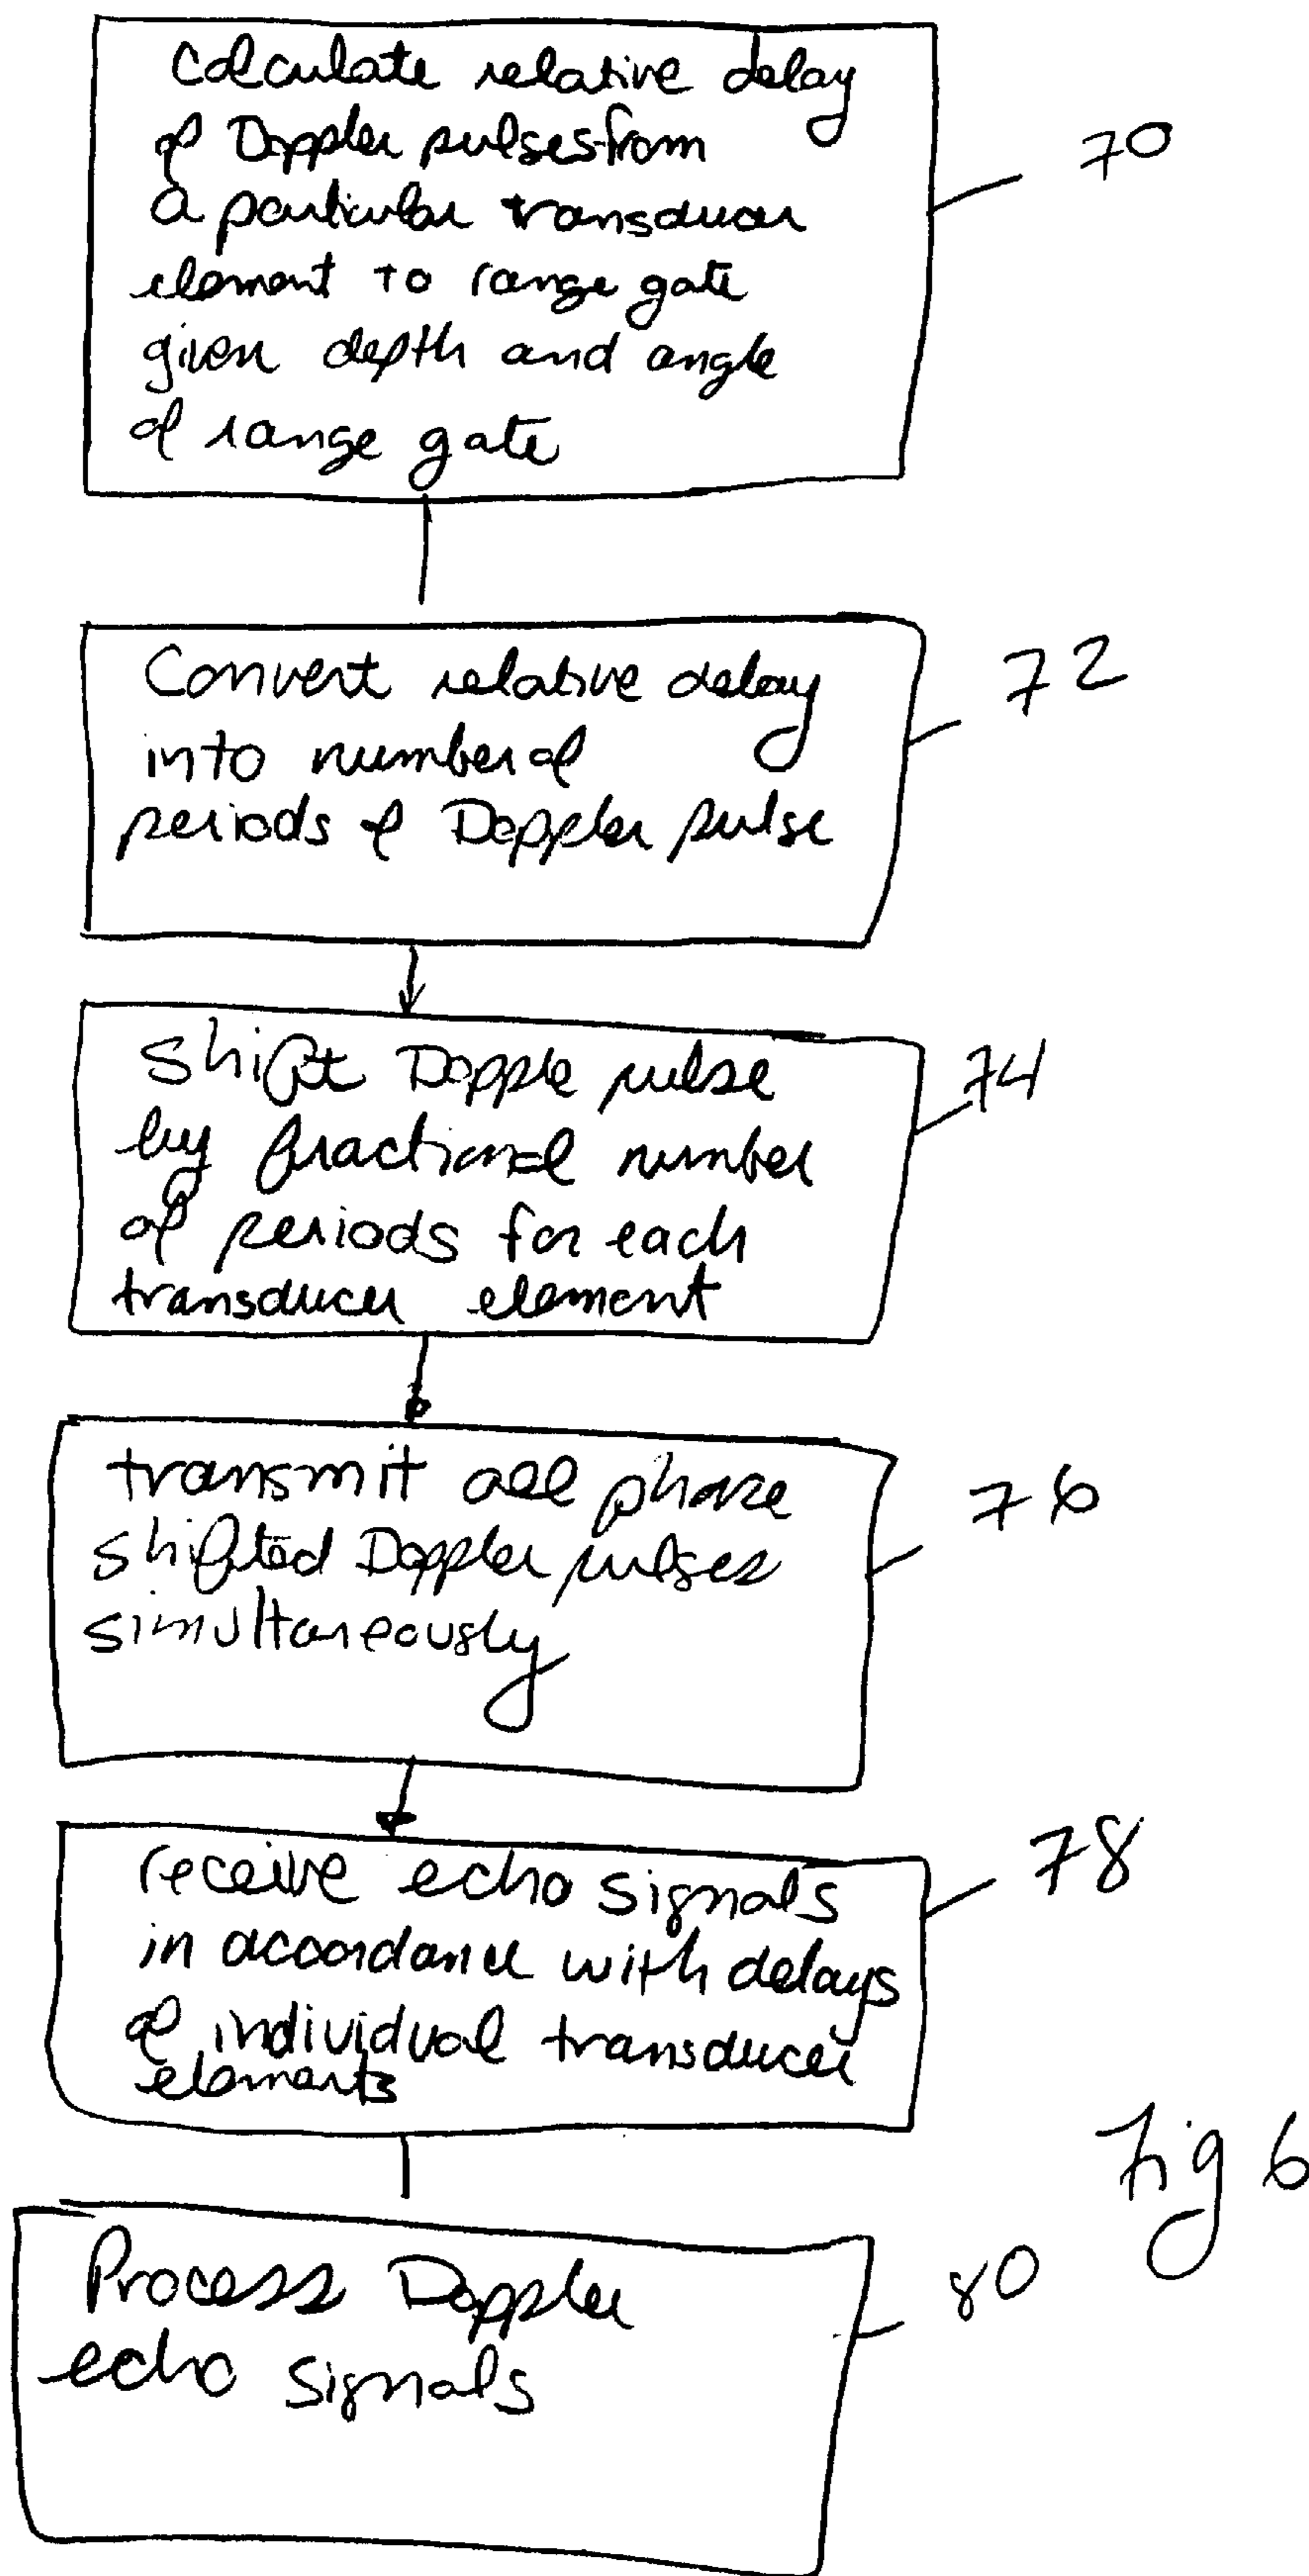 Calculate relative delay
of Doppler pulses from
a particular transducer
element to range gate
given depth and angle
of range gate
70
Convert relative delay
into number of
periods of Doppler pulse
72
Shift Dopple pulse
by fractional number
of periods for each
transducer element
74
transmit all phase
shifted Doppler pulses
simultaneously
76
receive echo signals
in accordance with delays
of individual transducer
elements
78
Fig 6
Process Doppler
echo signals
80